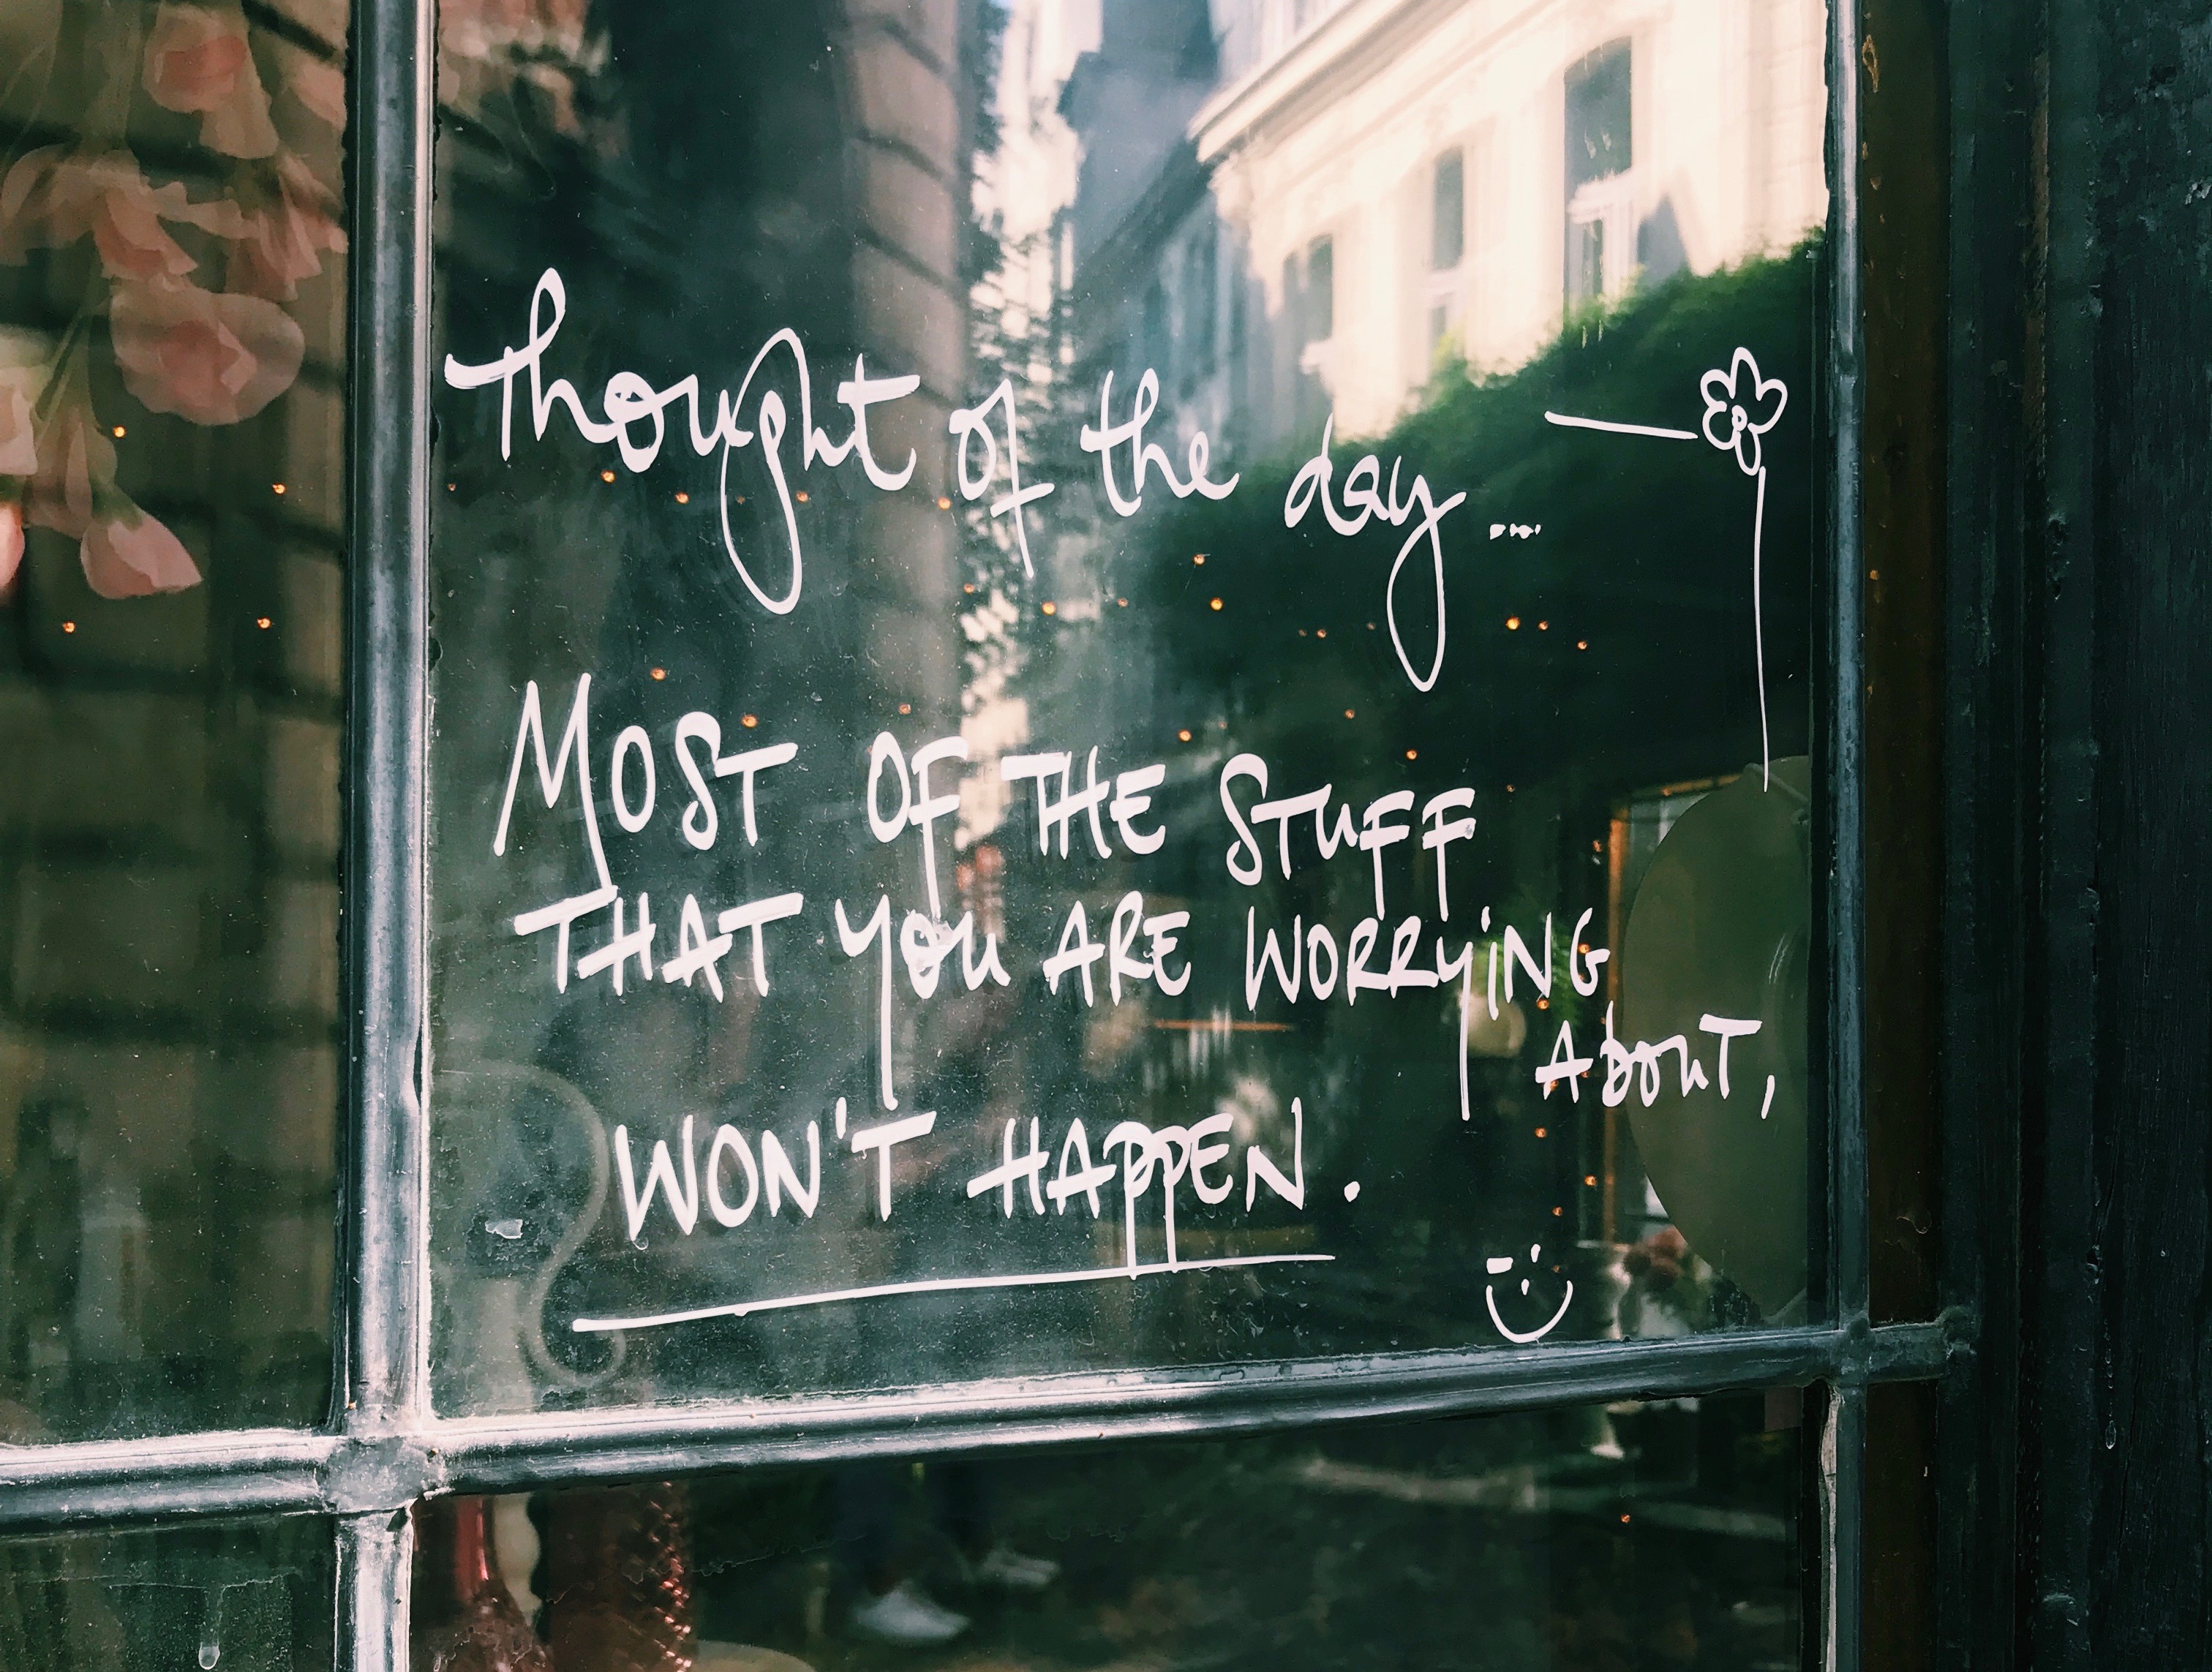 Thought of the day ....
MOST OF THE STUFF
THAT you ARE WORRYiNG
About,
WON'T HAPPEN.